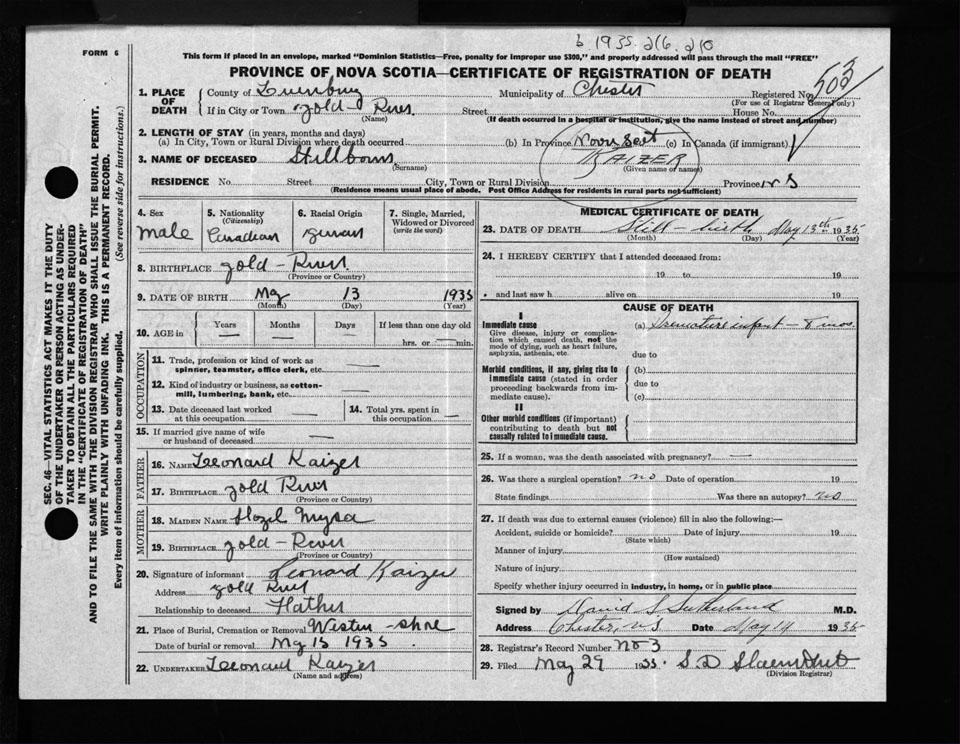 b. 1935. 216. 210
FORM 6
This form if placed in an envelope, marked "Dominion Statistics—Free, penalty for improper use $300," and properly addressed will pass through the mail "FREE"
PROVINCE OF NOVA SCOTIA—CERTIFICATE OF REGISTRATION OF DEATH
503
1. PLACE OF DEATH
County of Lunenburg Municipality of Chester Registered No.
(For use of Registrar General only)
If in City or Town Gold River Street House No.
(Name) (If death occurred in a hospital or institution, give the name instead of street and number)
2. LENGTH OF STAY (in years, months and days)
(a) In City, Town or Rural Division where death occurred (b) In Province Nova Scot (c) In Canada (if immigrant)
3. NAME OF DECEASED Stillborn KAIZER
(Surname) (Given name or names)
RESIDENCE No. Street City, Town or Rural Division Province N S
(Residence means usual place of abode. Post Office Address for residents in rural parts not sufficient)
SEC. 46—VITAL STATISTICS ACT MAKES IT THE DUTY
OF THE UNDERTAKER OR PERSON ACTING AS UNDER-
TAKER TO OBTAIN ALL THE PARTICULARS REQUIRED
IN THE "CERTIFICATE OF REGISTRATION OF DEATH"
AND TO FILE THE SAME WITH THE DIVISION REGISTRAR WHO SHALL ISSUE THE BURIAL PERMIT.
WRITE PLAINLY WITH UNFADING INK. THIS IS A PERMANENT RECORD.
Every item of information should be carefully supplied. (See reverse side for instructions.)
4. Sex
Male
5. Nationality
(Citizenship)
Canadian
6. Racial Origin
German
7. Single, Married,
Widowed or Divorced
(write the word)
8. BIRTHPLACE Gold - River
(Province or Country)
9. DATE OF BIRTH May 13 1935
(Month) (Day) (Year)
10. AGE in
Years Months Days If less than one day old
hrs. or min.
OCCUPATION
11. Trade, profession or kind of work as
spinner, teamster, office clerk, etc.
12. Kind of industry or business, as cotton-
mill, lumbering, bank, etc.
13. Date deceased last worked
at this occupation
14. Total yrs. spent in
this occupation
15. If married give name of wife
or husband of deceased
FATHER
16. NAME Leonard Kaizer
17. BIRTHPLACE Gold River
(Province or Country)
MOTHER
18. MAIDEN NAME Hazel Myra
19. BIRTHPLACE Gold - River
(Province or Country)
20. Signature of informant Leonard Kaizer
Address Gold River
Relationship to deceased Father
21. Place of Burial, Cremation or Removal Western - Shore
Date of burial or removal May 15 1935.
22. UNDERTAKER Leonard Kaizer
(Name and Address)
MEDICAL CERTIFICATE OF DEATH
23. DATE OF DEATH Still - birth May 13th 1935
(Month) (Day) (Year)
24. I HEREBY CERTIFY that I attended deceased from:
19 to 19
and last saw h alive on 19
CAUSE OF DEATH
I
Immediate cause
Give disease, injury or complica-
tion which caused death, not the
mode of dying, such as heart failure,
asphyxia, asthenia, etc.
(a) Immature infant - 8 mos.
due to
Morbid conditions, if any, giving rise to
immediate cause (stated in order
proceeding backwards from im-
mediate cause).
(b)
due to
(c)
II
Other morbid conditions (if important)
contributing to death but not
causally related to immediate cause.
25. If a woman, was the death associated with pregnancy?
26. Was there a surgical operation? no Date of operation 19
State findings Was there an autopsy? no
27. If death was due to external causes (violence) fill in also the following:—
Accident, suicide or homicide? Date of injury 19
(State which)
Manner of injury
(How sustained)
Nature of injury
Specify whether injury occurred in industry, in home, or in public place
Signed by David S Sutherland M.D.
Address Chester, NS Date May 14 1935
28. Registrar's Record Number No 3
29. Filed May 29 1935. S. D
(Division Registrar)